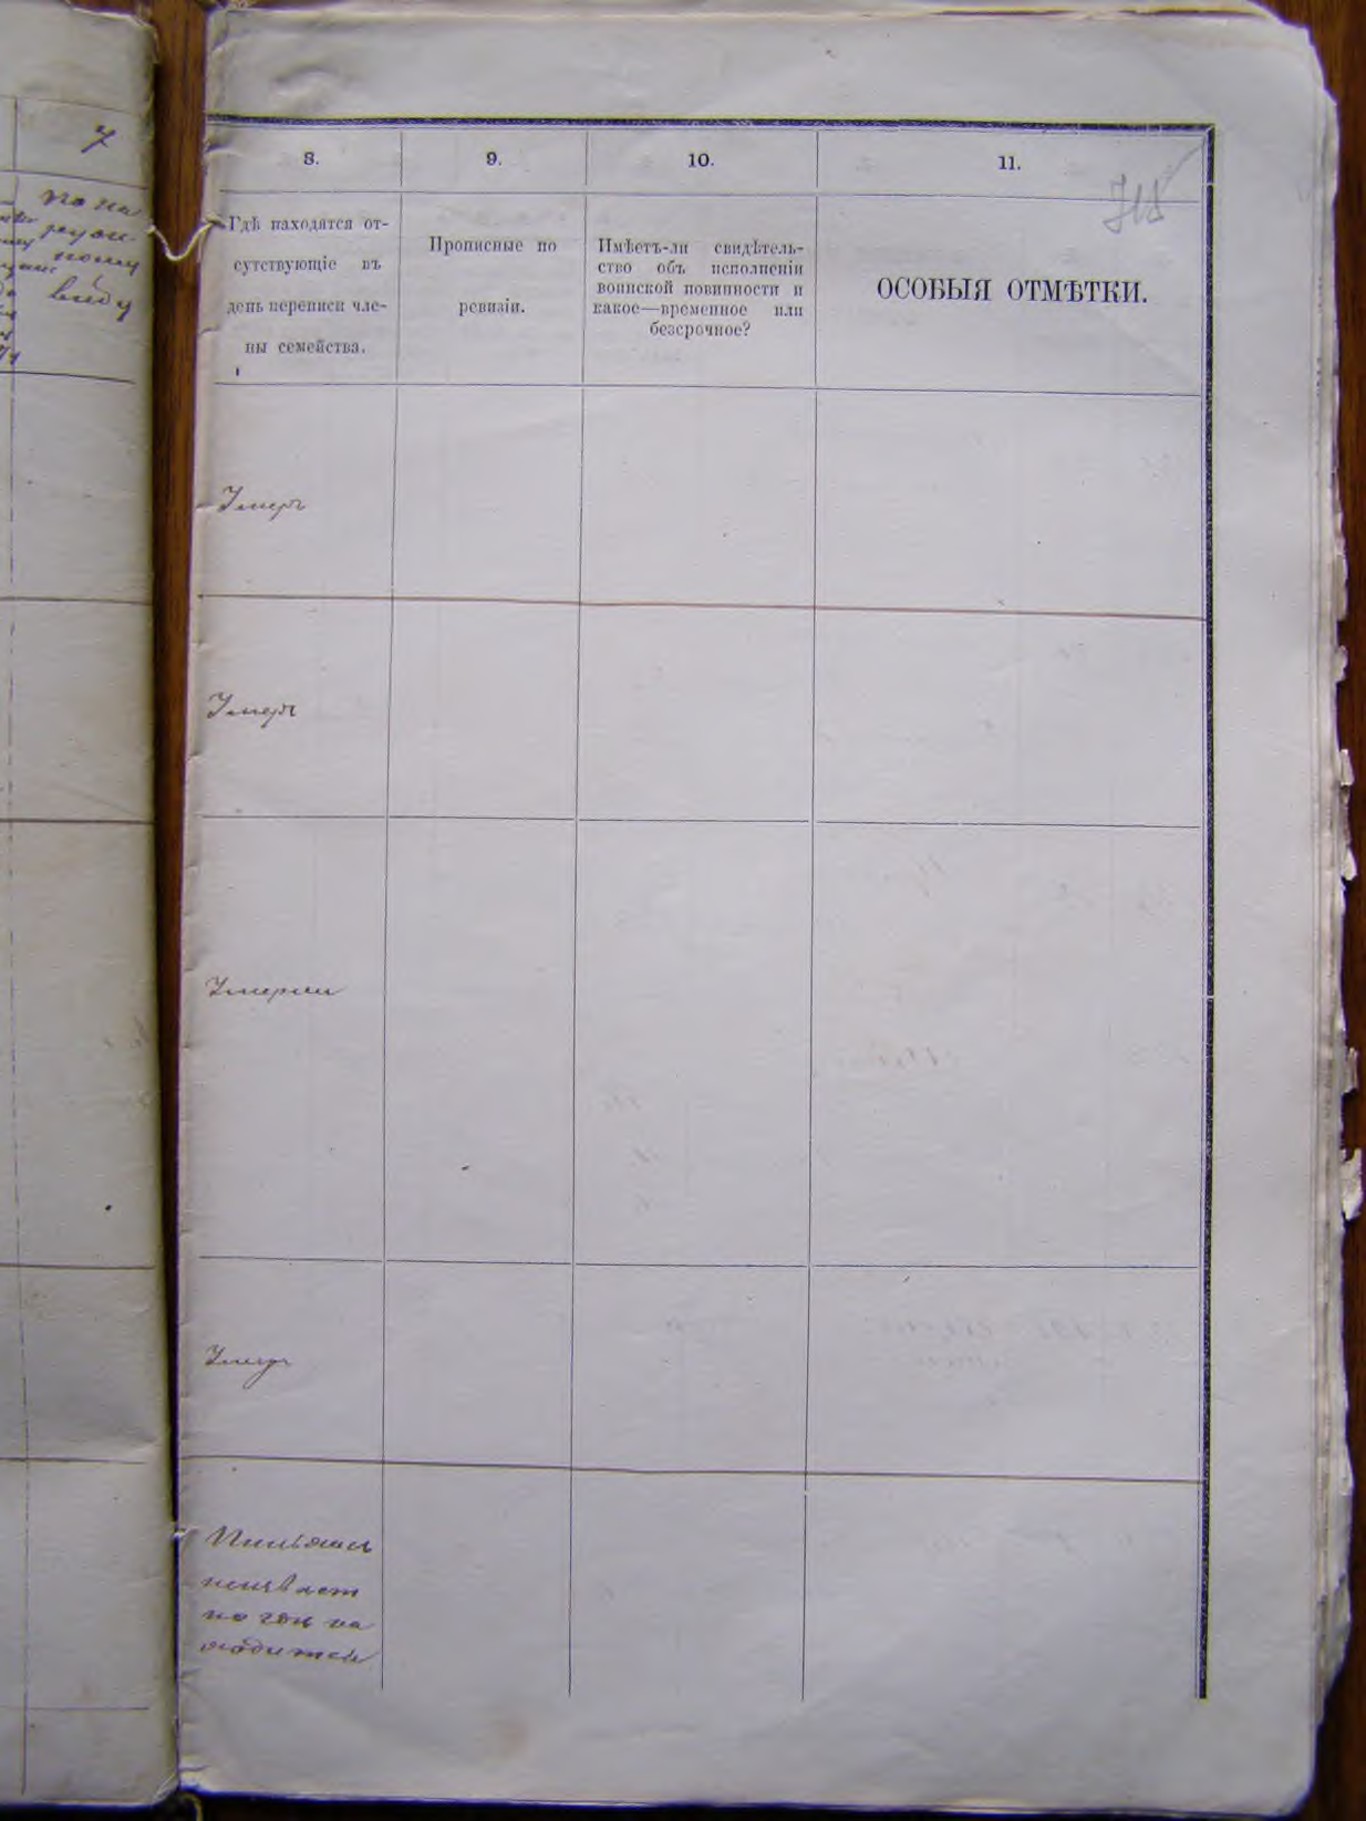 7
по на
ному
виду
8.
9.
10.
11.
Гдѣ находятся от-
сутствующіе въ
день переписи чле-
ны семейства.
Прописные по
ревизіи.
Имѣетъ-ли свидѣтель-
ство объ исполненіи
воинской повинности и
какое—временное или
безсрочное?
ОСОБЫЯ ОТМѢТКИ.
Умеръ
Умеръ
Умерли
Умеръ
но гдѣ на
ходится